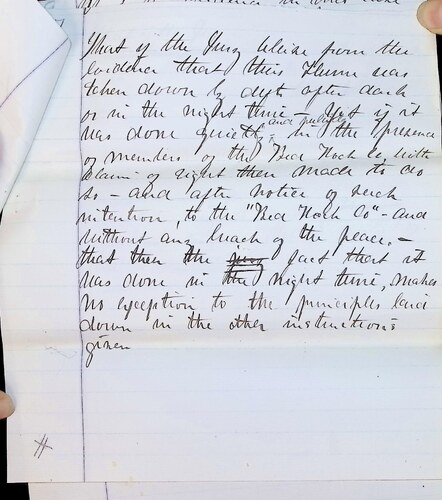 that if the Jury believe from the
Evidence that this Flume was
taken down by deft after dark
or in the night time – Yet if it
was done quietly, and publicly in the presence
of members of the Bed Rock Co. with
claim of right then made to do
so – and after notice of such
intention, to the "Bed Rock Co" – and
without any breach of the peace, –
that then the jury fact that it
was done in the night time, makes
no exception to the principles laid
down in the other instructions
given
#